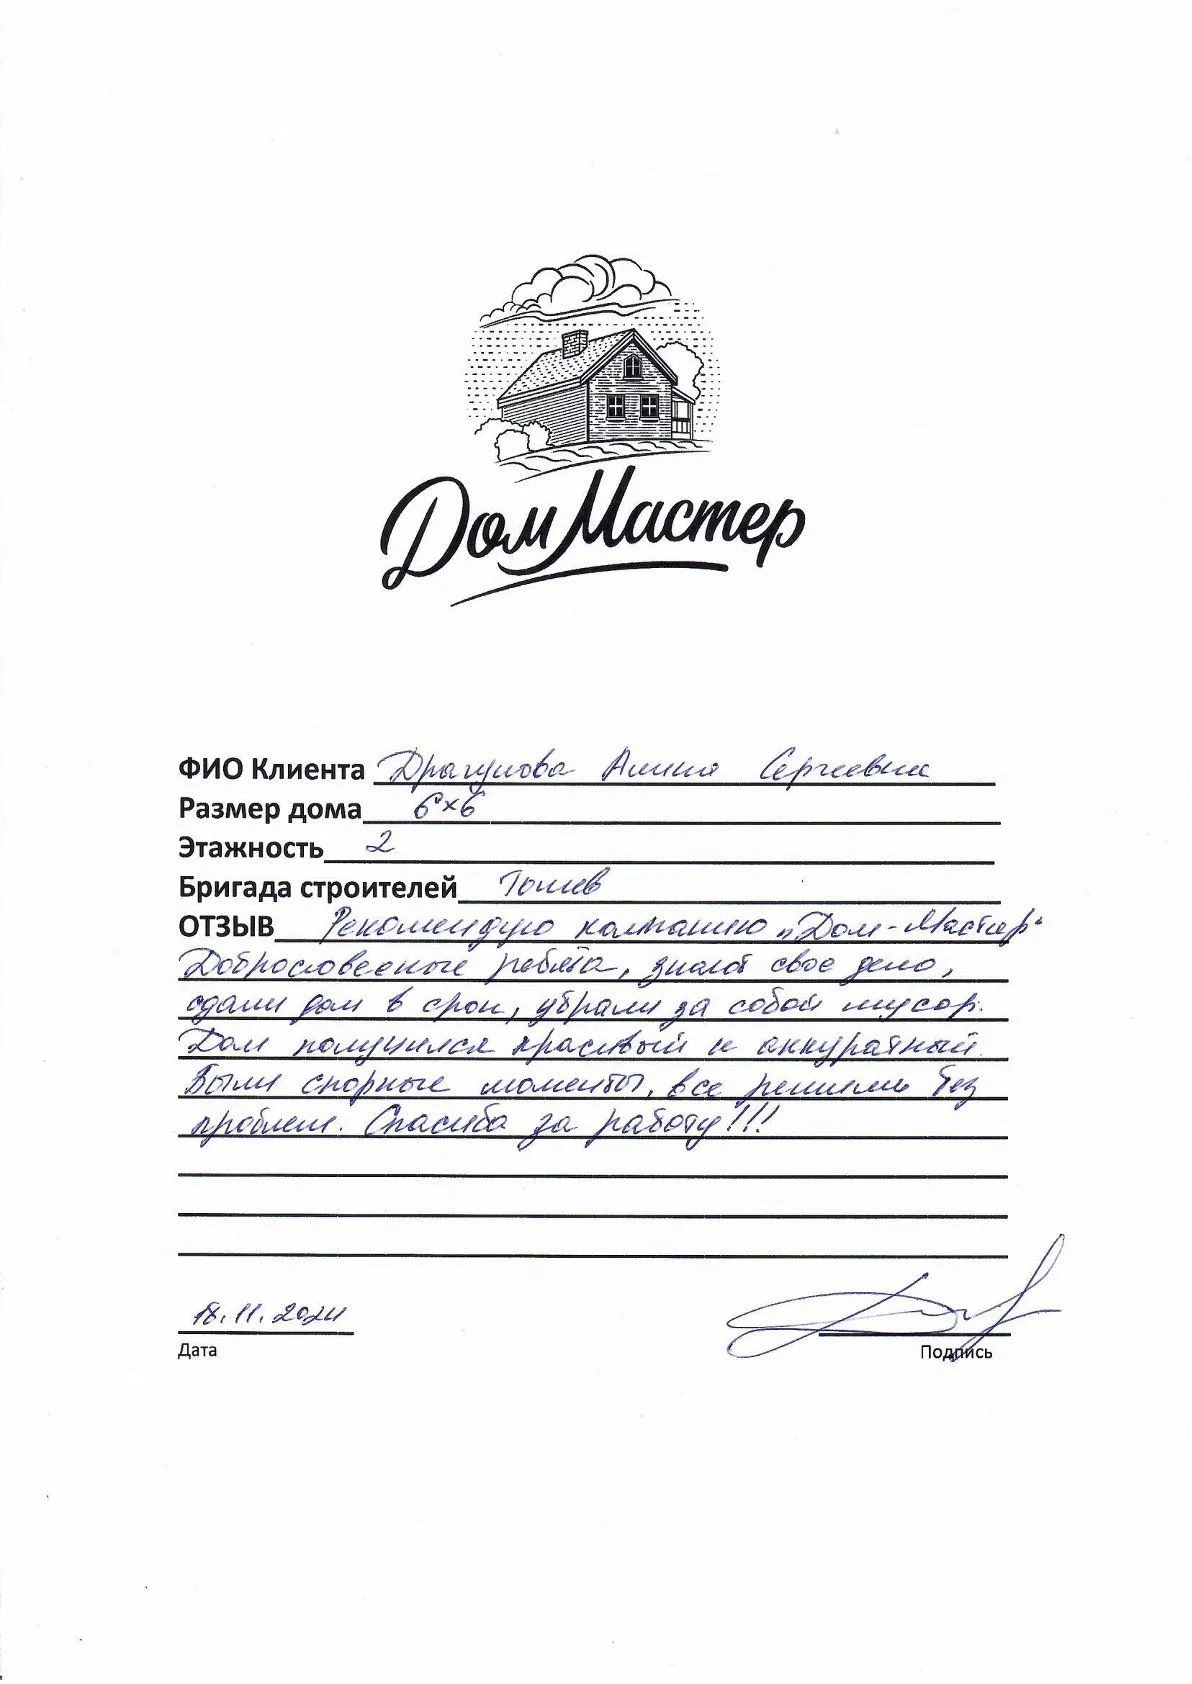 Дом Мастер
ФИО Клиента Драгунова Алина Сергеевна
Размер дома 6×6
Этажность 2
Бригада строителей
ОТЗЫВ Рекомендую компанию „Дом-Мастер“
Добрословесные ребята, знают свое дело,
сдали дом в срок, убрали за собой мусор.
Дом получился красивый и аккуратный.
Были спорные моменты, все решили без
проблем. Спасибо за работу!!!
18.11.2024
Дата
Подпись